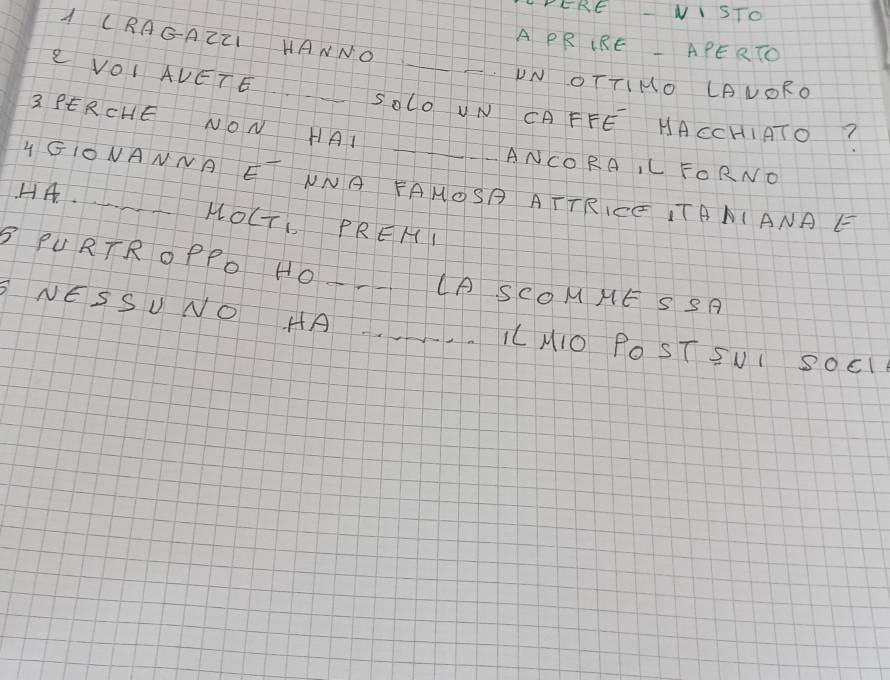 VISTO
APRIRE - APERTO
1 I RAGAZZI HANNO ------ UN OTTIMO LAVORO
2 VOI AVETE ------ SOLO UN CAFFE' MACCHIATO ?
3 PERCHE NON HAI ------ ANCORA IL FORNO
4 GIOVANNA E' UNA FAMOSA ATTRICE ITALIANA E
HA ------ MOLTI PREMI
5 PURTROPPO HO ---- LA SCOMMESSA
NESSUNO HA ------ IL MIO POST SUI